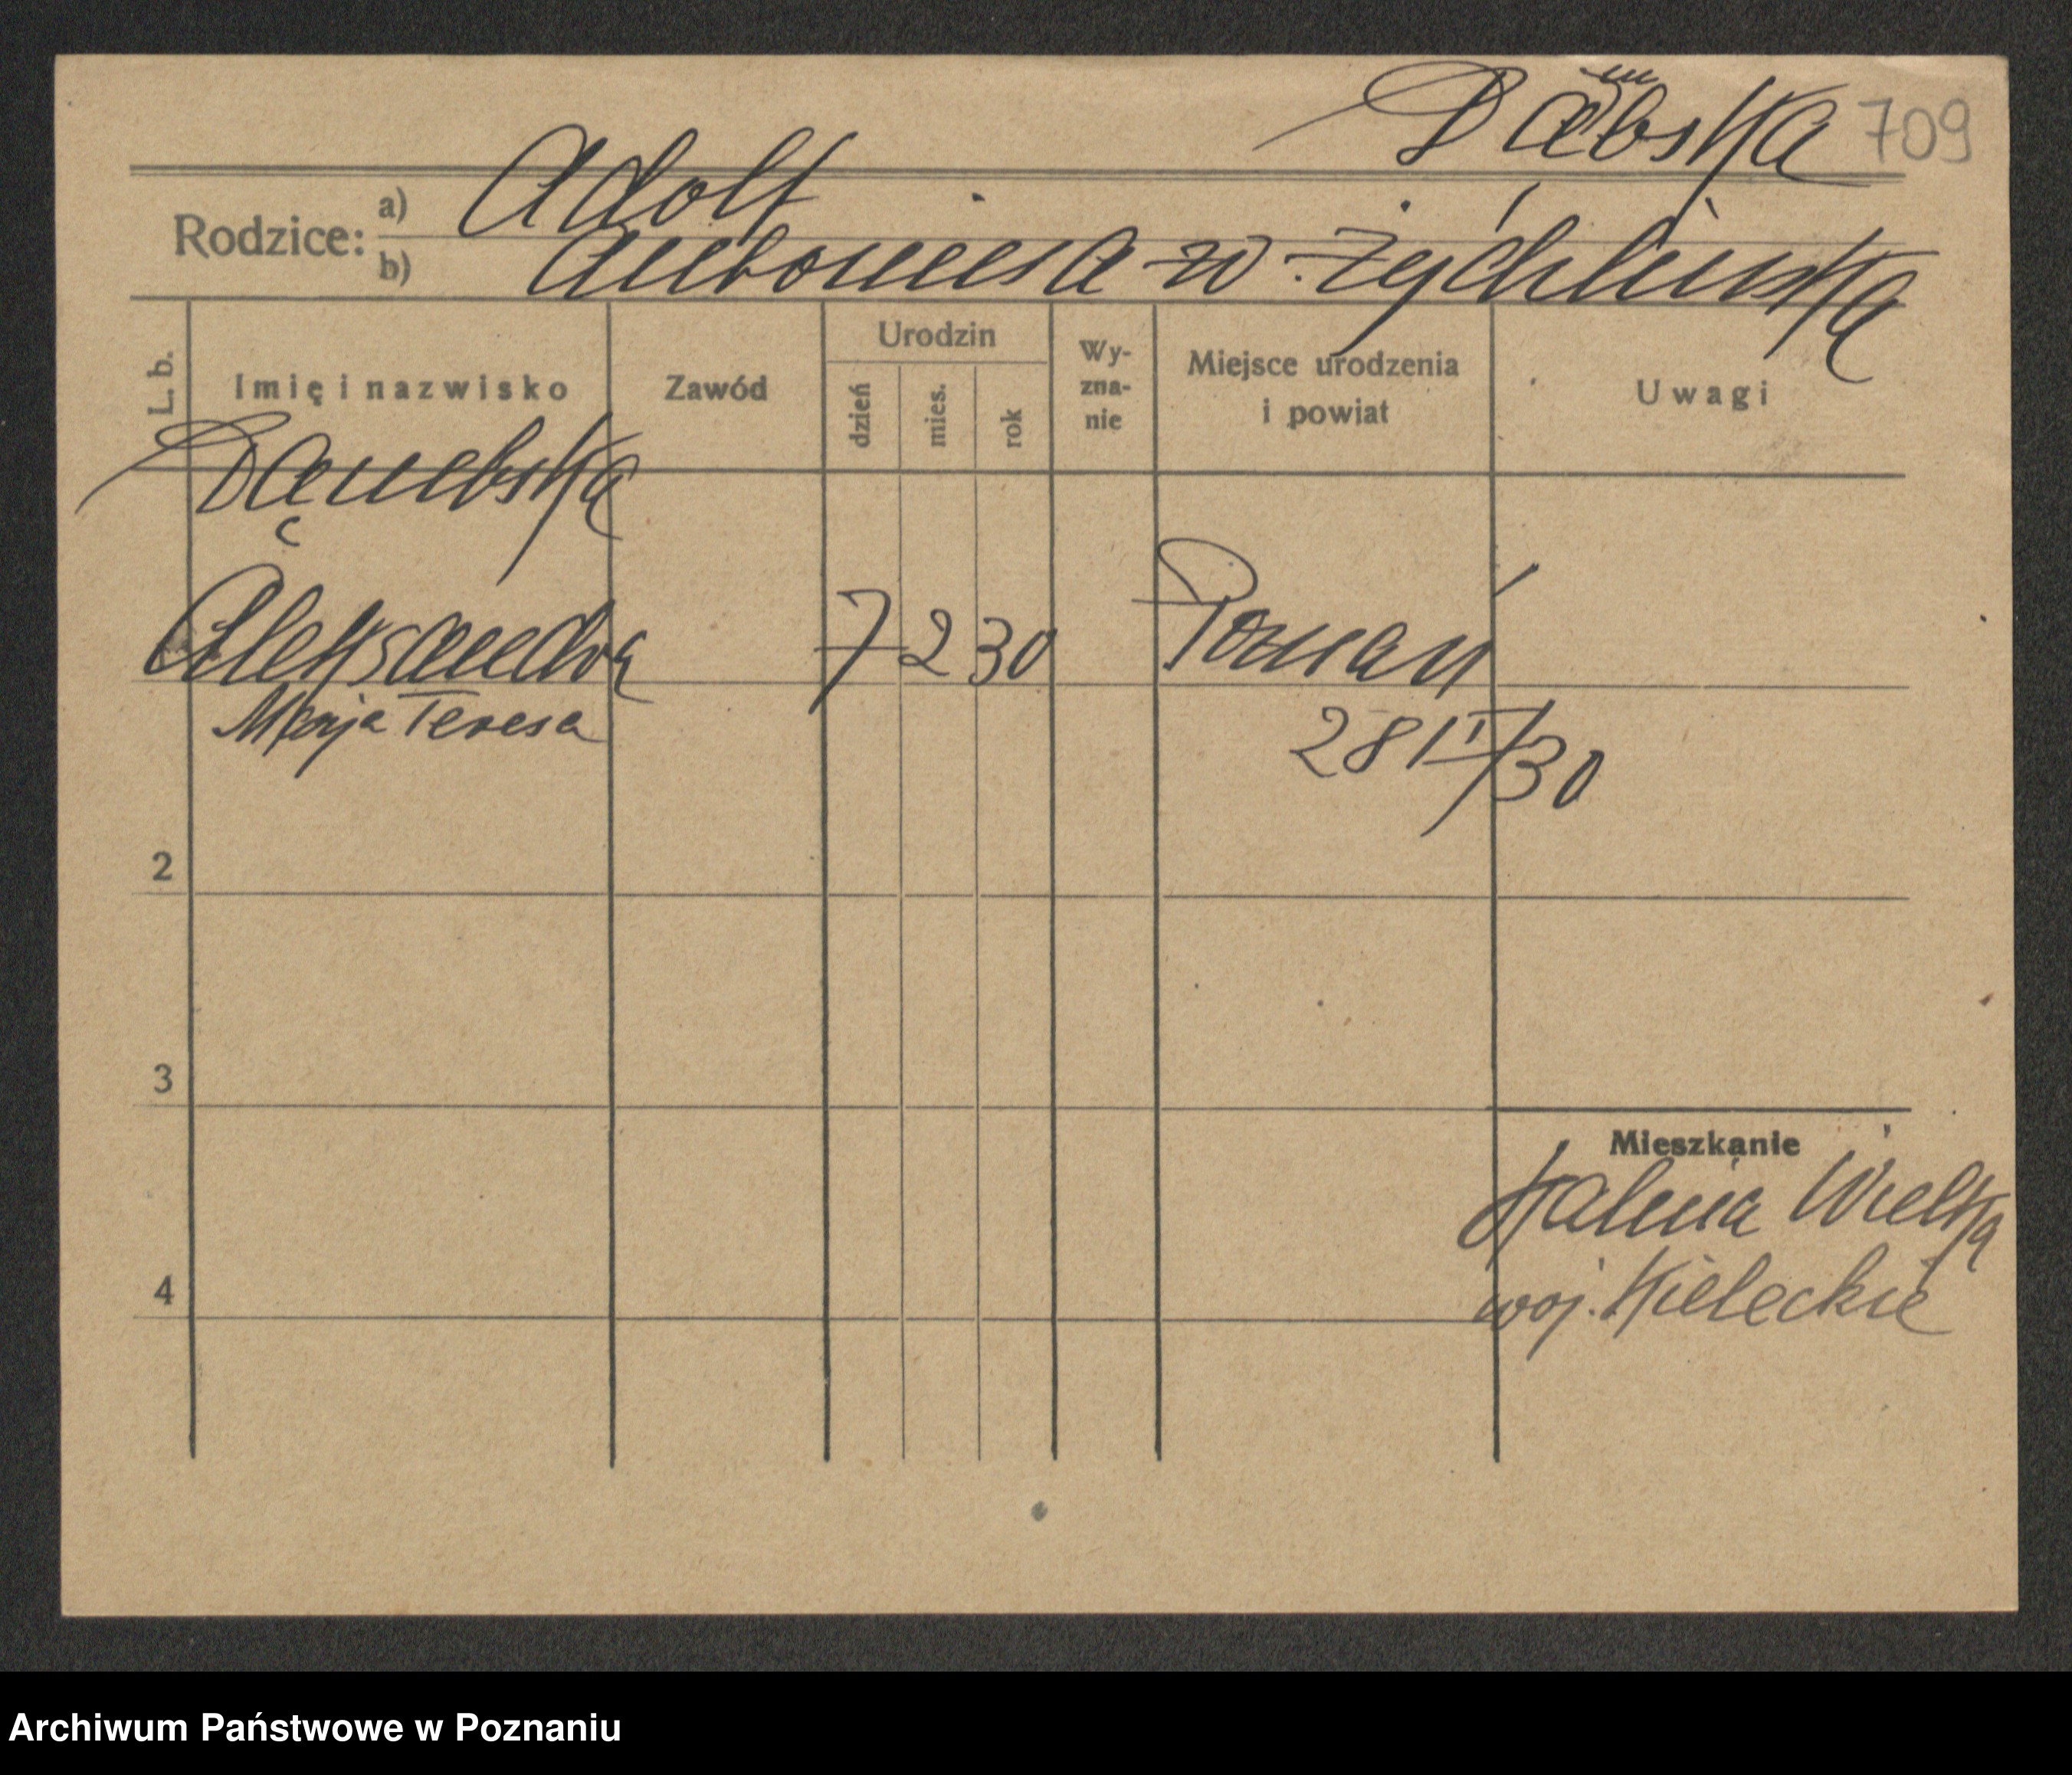 Dąmbska 709
Rodzice: a) Adolf
b) Antonina z d. Żychlińska
L. b. Imię i nazwisko Zawód Urodzin dzień mies. rok Wy-zna-nie Miejsce urodzenia i powiat Uwagi
Dąmbska
Aleksandra 7 2 30 Poznań
Marja Teresa 28/II/30
2
3
Mieszkanie
Wielka
4 woj. Kieleckie
Archiwum Państwowe w Poznaniu